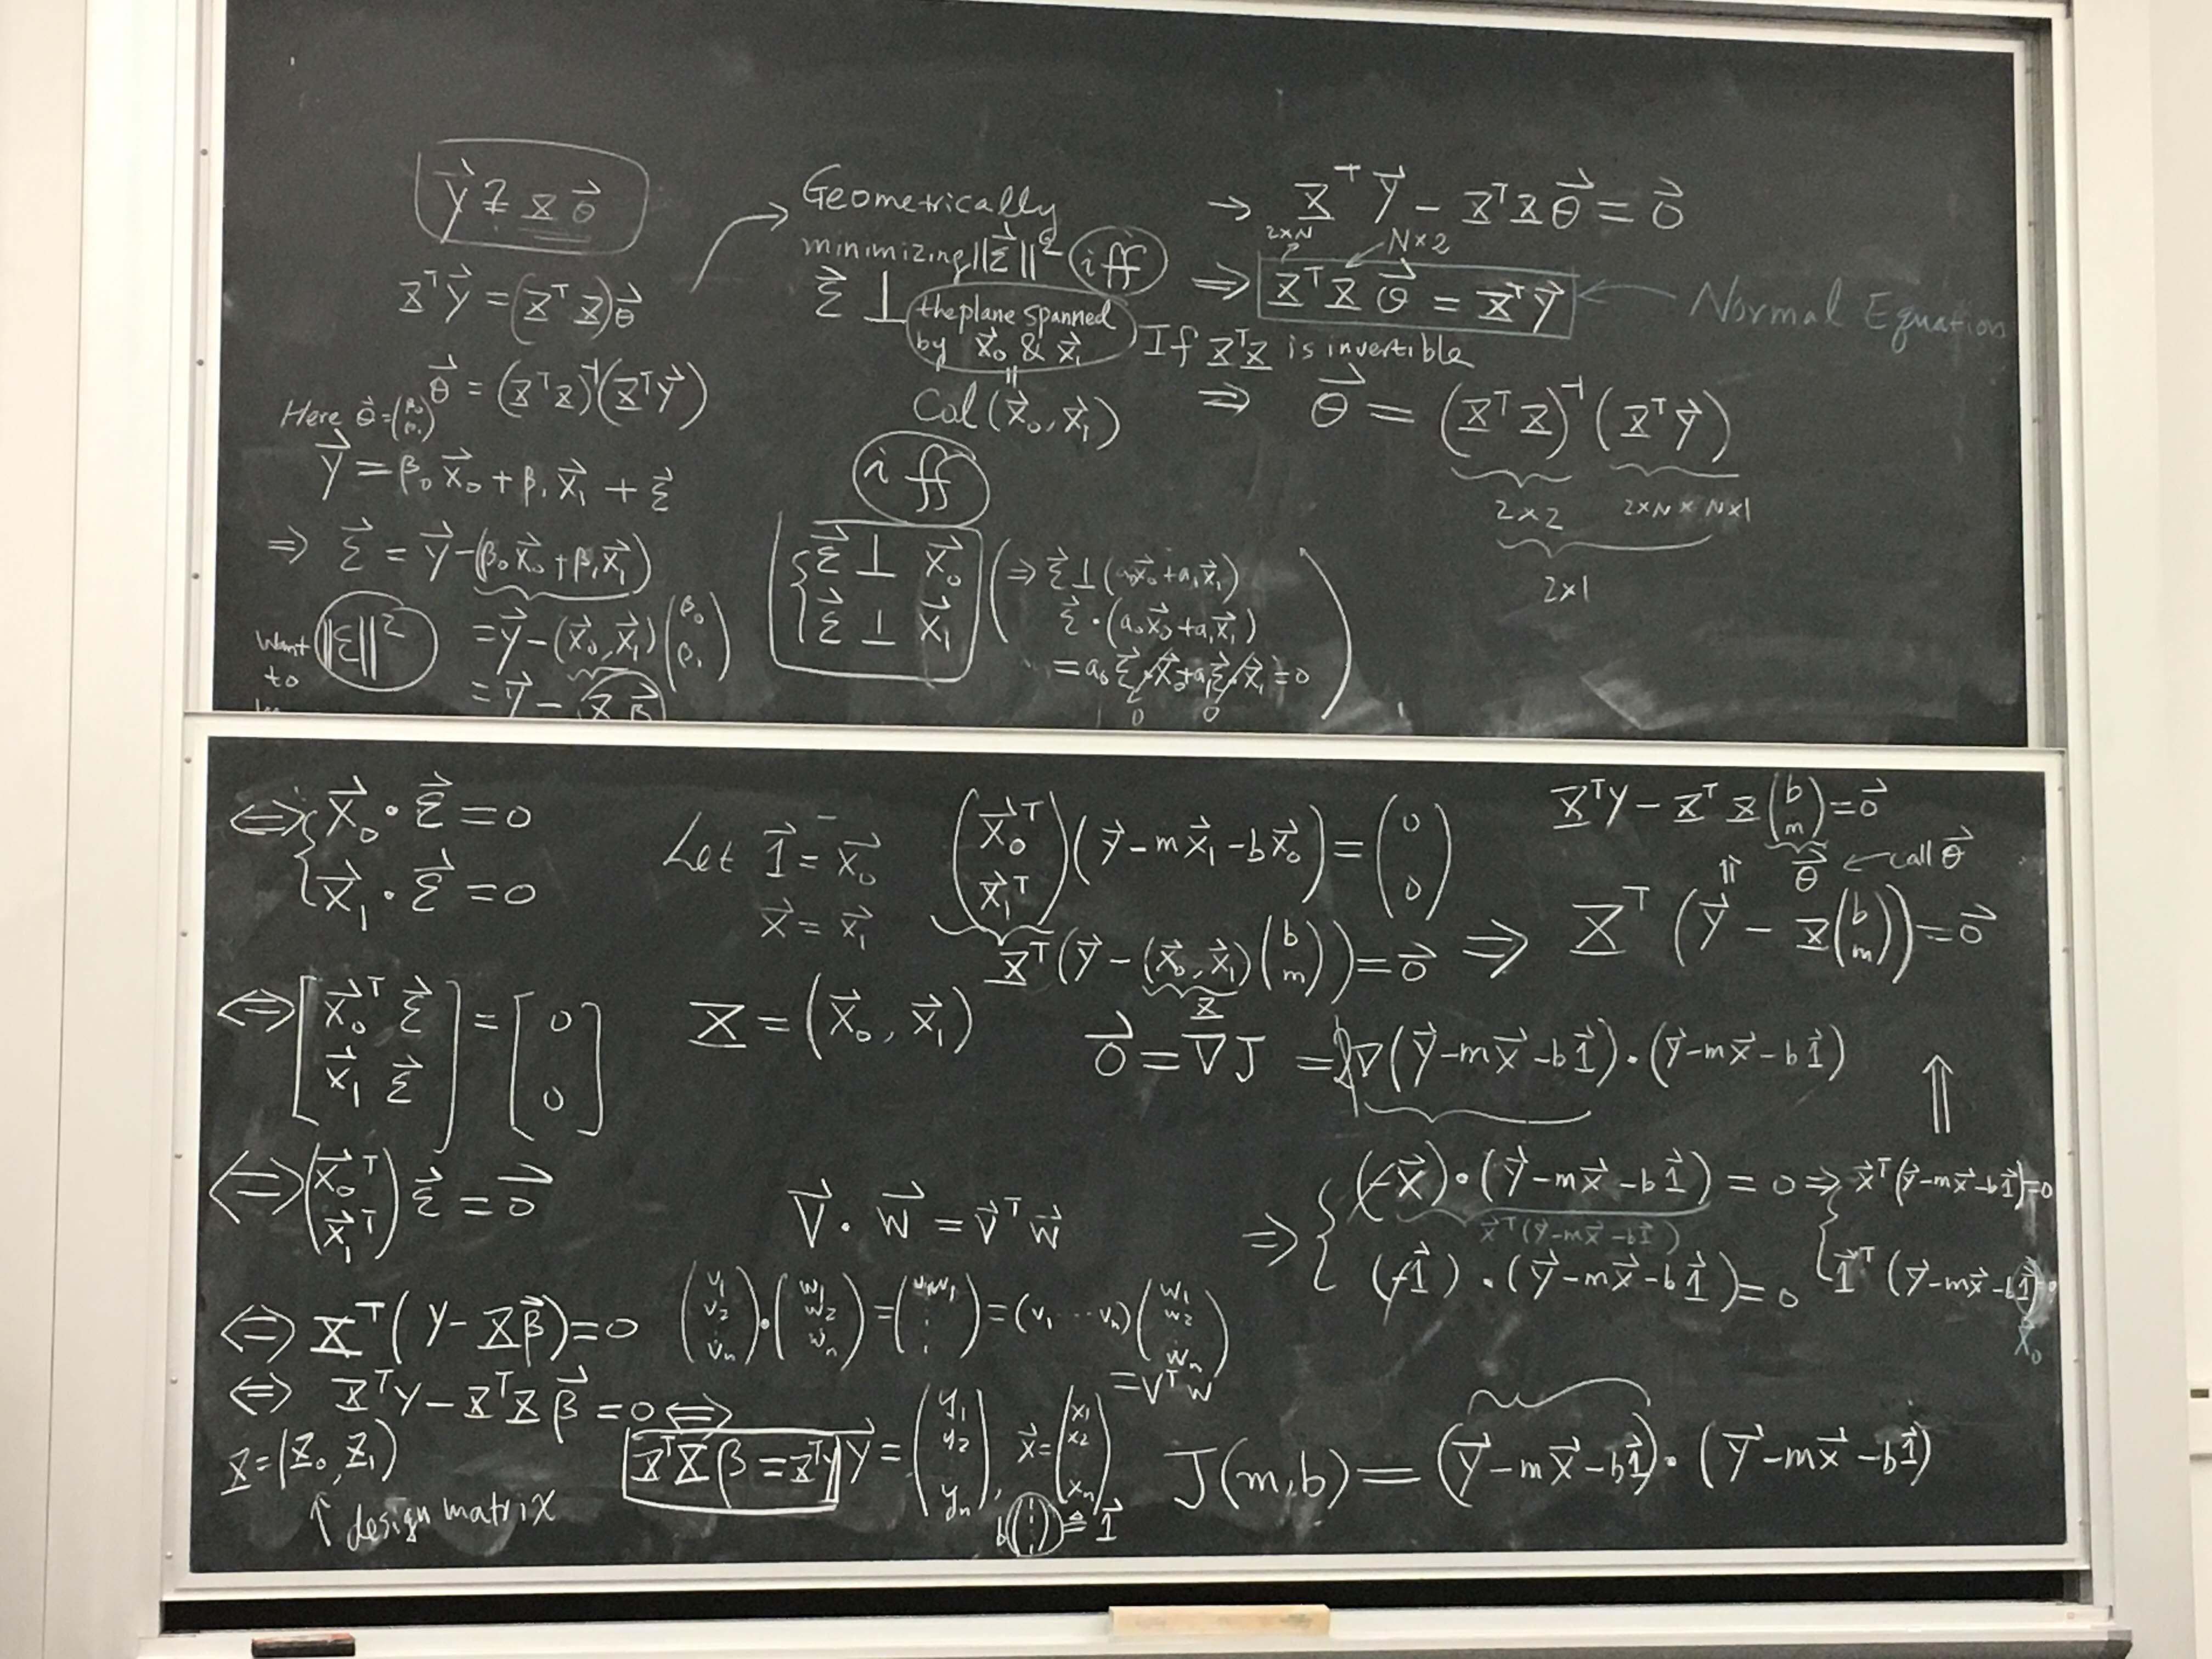 y⃗ ≟ X θ⃗
Xᵀy⃗ = (Xᵀ X)θ⃗
θ⃗ = (Xᵀ X)⁻¹(Xᵀy⃗)
Here θ⃗ = (β₀ β₁)
y⃗ = β₀x⃗₀ + β₁x⃗₁ + ε⃗
⇒ ε⃗ = y⃗ - (β₀x⃗₀ + β₁x⃗₁)
= y⃗ - (x⃗₀, x⃗₁)(β₀ β₁)
Want ‖ε‖²
to
= y⃗ - X β⃗
→ Geometrically
minimizing ‖ε⃗‖² iff
ε⃗ ⊥ the plane spanned
by x⃗₀ & x⃗₁
=
Col(x⃗₀, x⃗₁)
iff
{ ε⃗ ⊥ x⃗₀
ε⃗ ⊥ x⃗₁
(⇒ ε⃗ ⊥ (a₀x⃗₀ + a₁x⃗₁)
ε⃗ · (a₀x⃗₀ + a₁x⃗₁)
= a₀ε⃗·x⃗₀ + a₁ε⃗·x⃗₁ = 0)
0 0
→ Xᵀy⃗ - XᵀXθ⃗ = 0⃗
2×N N×2
⇒ XᵀXθ⃗ = Xᵀy⃗ ← Normal Equation
If XᵀX is invertible
⇒ θ⃗ = (XᵀX)⁻¹(Xᵀy⃗)
2×2 2×N × N×1
2×1
⇔ { x⃗₀ · ε⃗ = 0
x⃗₁ · ε⃗ = 0
⇔ [x⃗₀ᵀ ε⃗
x⃗₁ ε⃗] = [0
0]
⇔ (x⃗₀ᵀ
x⃗₁ᵀ) ε⃗ = 0⃗
⇔ Xᵀ(y - Xβ⃗) = 0
⇔ Xᵀy - XᵀXβ⃗ = 0 ⇔
XᵀXβ = Xᵀy
X = (X₀, X₁)
↑ design matrix
Let 1⃗ = x⃗₀
x⃗ = x⃗₁
X = (x⃗₀, x⃗₁)
v⃗ · w⃗ = v⃗ᵀw⃗
(v₁ v₂ ⋮ vₙ) · (w₁ w₂ ⋮ wₙ) = (v₁w₁ ⋮) = (v₁ ⋯ vₙ)(w₁ w₂ ⋮ wₙ)
= vᵀw
y⃗ = (y₁ y₂ ⋮ yₙ), x⃗ = (x₁ x₂ ⋮ xₙ)
b(⋮) ≜ 1⃗
(x⃗₀ᵀ
x⃗₁ᵀ)(y⃗ - mx⃗₁ - bx⃗₀) = (0
0)
Xᵀ(y⃗ - (x⃗₀, x⃗₁)(b m)) = 0⃗
X
⇒ Xᵀ(y⃗ - X(b m)) = 0⃗
⇑
Xᵀy - XᵀX(b m) = 0⃗
θ⃗ ← call θ⃗
0⃗ = ∇J = 2∇(y⃗ - mx⃗ - b1⃗)·(y⃗ - mx⃗ - b1⃗)
⇒ { (-x⃗)·(y⃗ - mx⃗ - b1⃗) = 0 ⇒ { x⃗ᵀ(y⃗ - mx⃗ - b1⃗) = 0
x⃗ᵀ(y⃗ - mx⃗ - b1⃗)
(-1⃗)·(y⃗ - mx⃗ - b1⃗) = 0 1⃗ᵀ(y⃗ - mx⃗ - b1⃗) = 0
x⃗₀
⇑
J(m,b) = (y⃗ - mx⃗ - b1⃗)·(y⃗ - mx⃗ - b1⃗)